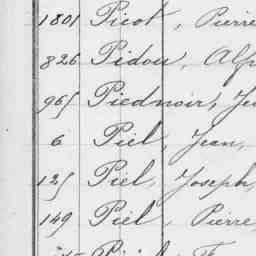 1801 Picot, Pierre
826 Pidou, Alf
965 Piednoir, Je
6 Piel, Jean,
125 Piel, Joseph,
149 Piel, Pierre,